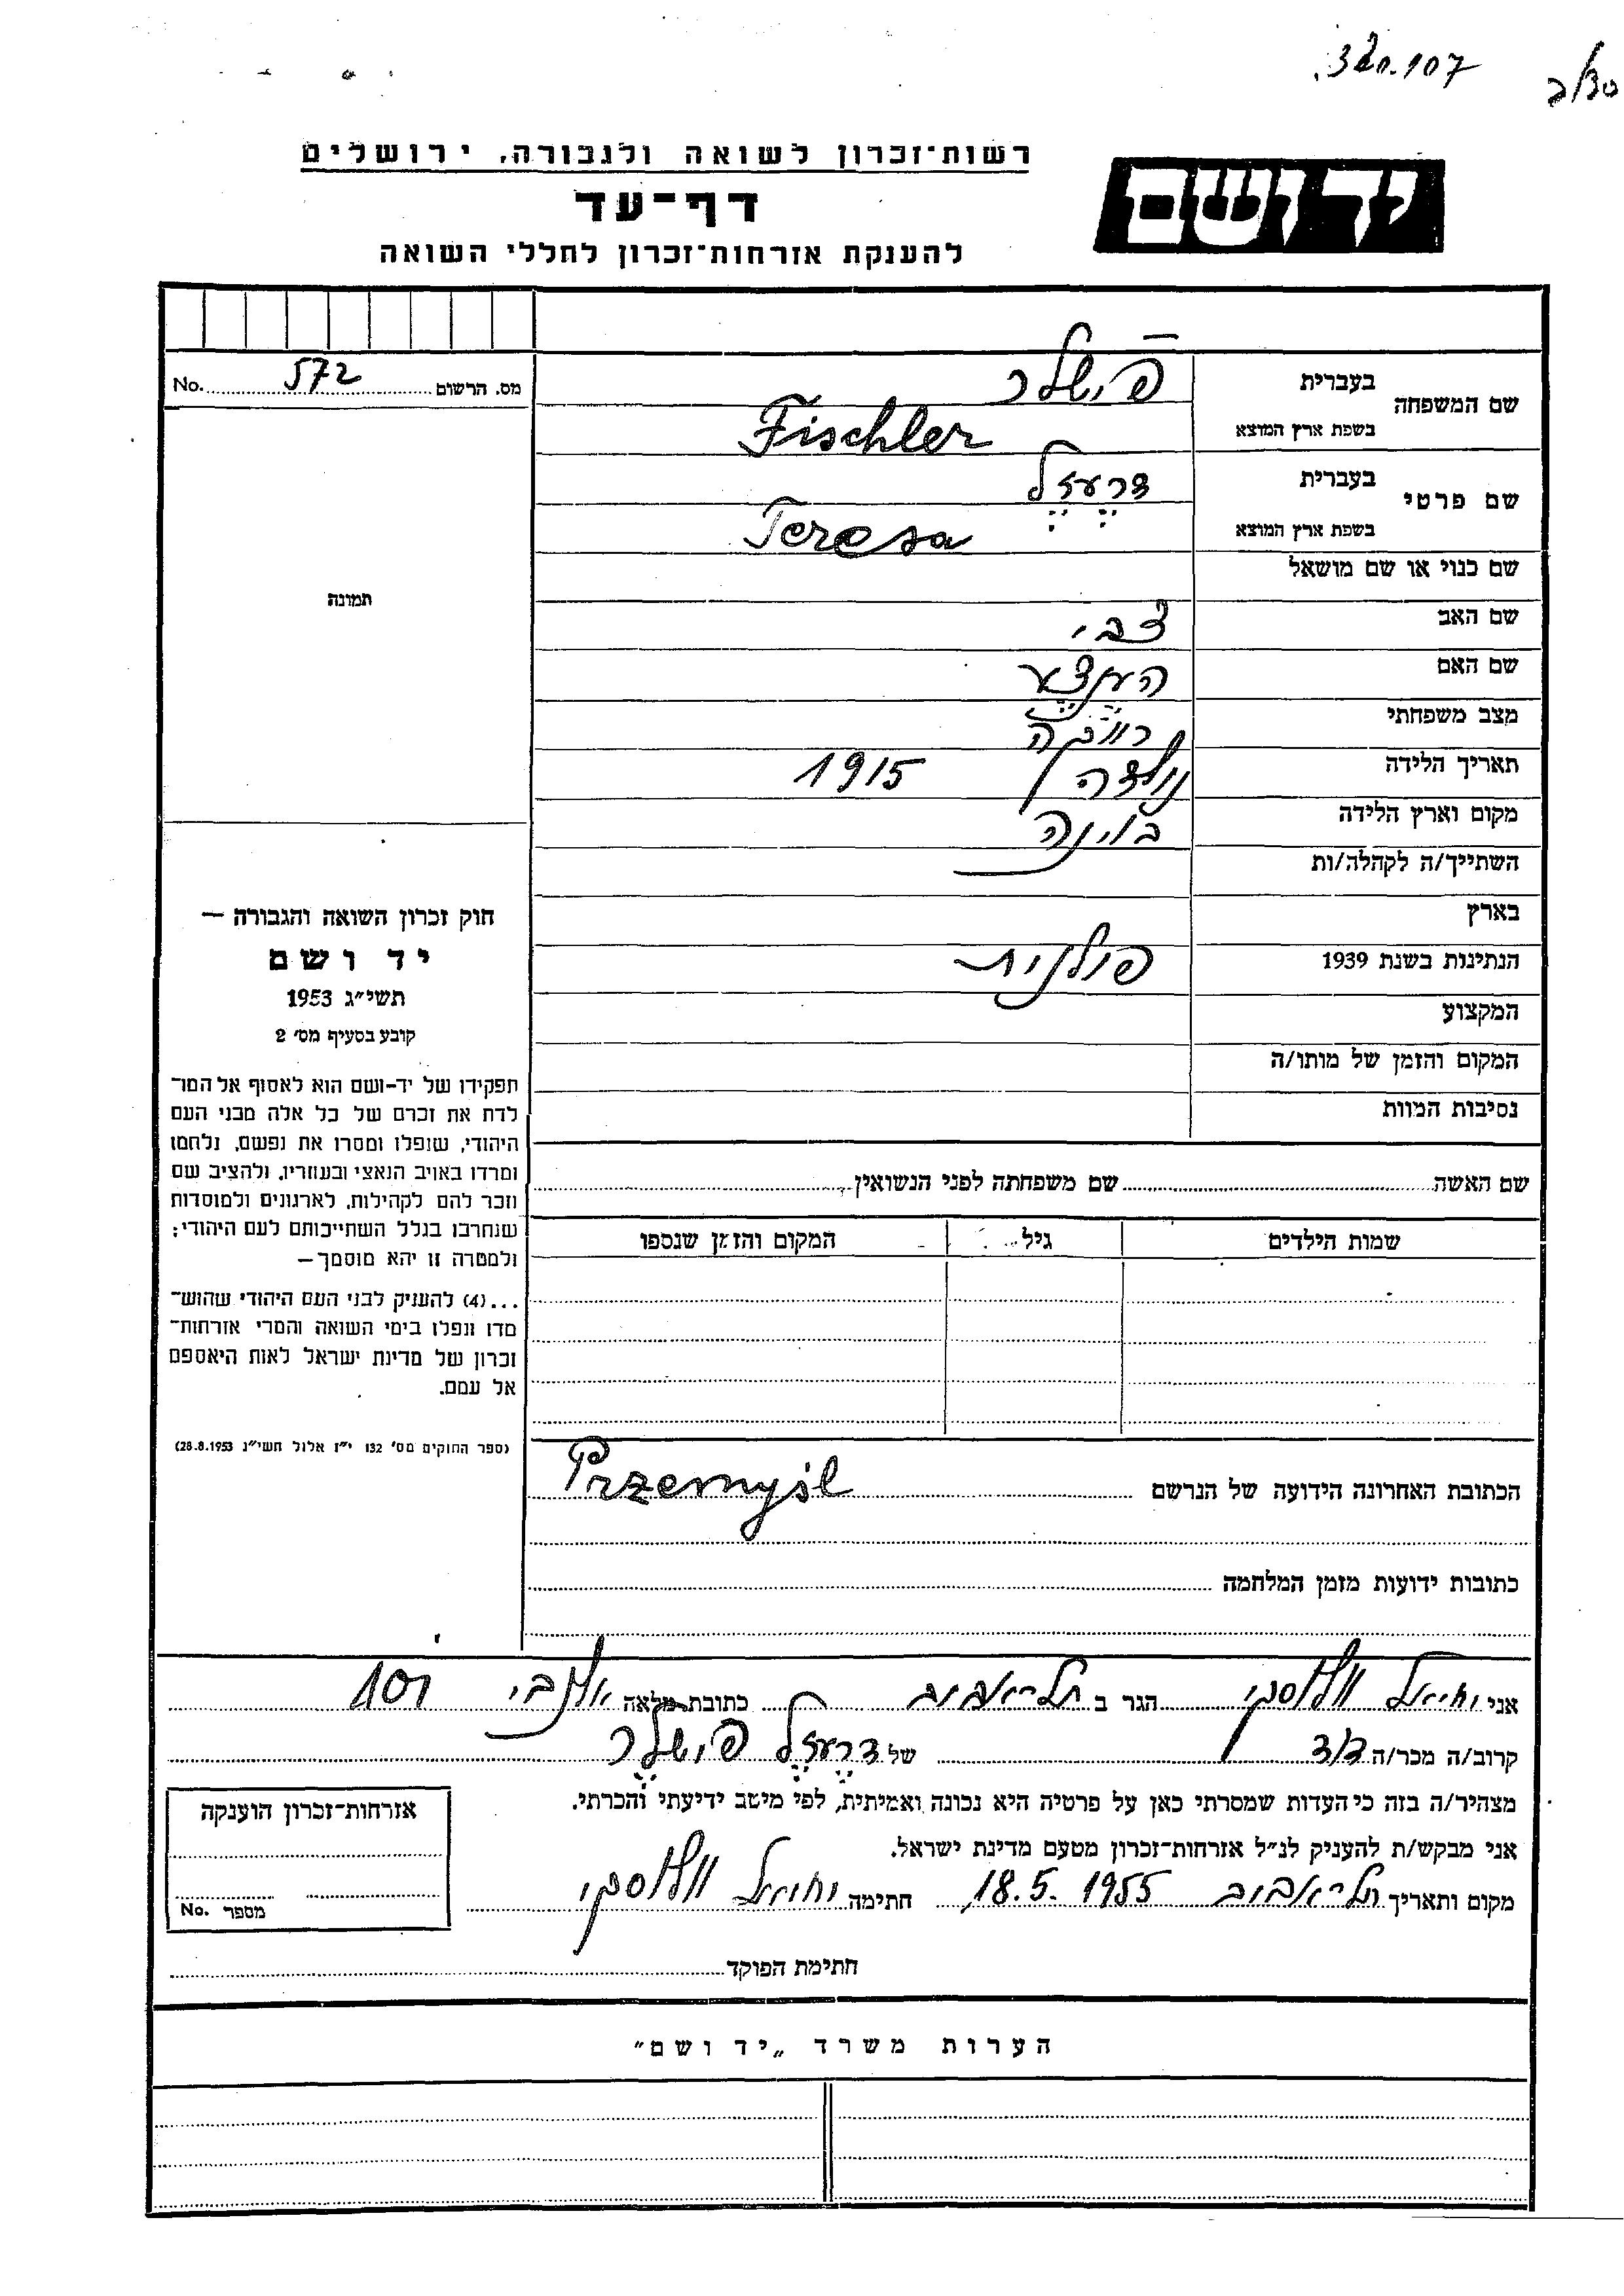 רשות-זכרון לשואה ולגבורה, ירושלים
דף-עד
להענקת אזרחות-זכרון לחללי השואה
יד ושם
No. 572 מס. הרשום
שם המשפחה
בעברית פישלר
בשפת ארץ המוצא Fischler
שם פרטי
בעברית דרעזל
בשפת ארץ המוצא Teresa
שם כנוי או שם מושאל
שם האב צבי
שם האם
מצב משפחתי רווקה
תאריך הלידה נולדה 1915
מקום וארץ הלידה
השתייך/ה לקהלה/ות
בארץ
הנתינות בשנת 1939 פולנית
המקצוע
המקום והזמן של מותו/ה
נסיבות המוות
תמונה
חוק זכרון השואה והגבורה —
יד ושם
תשי״ג 1953
קובע בסעיף מס׳ 2
תפקידו של יד-ושם הוא לאסוף אל המו־
לדת את זכרם של כל אלה מבני העם
היהודי, שנפלו ומסרו את נפשם, נלחמו
ומרדו באויב הנאצי ובעוזריו, ולהציב שם
וזכר להם לקהילות, לארגונים ולמוסדות
שנחרבו בגלל השתייכותם לעם היהודי;
ולמטרה זו יהא מוסמך—
...(4) להעניק לבני העם היהודי שהוש־
מדו ונפלו בימי השואה והמרי אזרחות־
זכרון של מדינת ישראל לאות היאספם
אל עמם.
(ספר החוקים מס׳ 132 י״ז אלול תשי״ג 28.8.1953)
שם האשה שם משפחתה לפני הנשואין
שמות הילדים גיל המקום והזמן שנספו
הכתובת האחרונה הידועה של הנרשם Przemyśl
כתובות ידועות מזמן המלחמה
אני יחיאל הגר ב תל־אביב כתובת מלאה אלנבי 101
קרוב/ה מכר/ה דוד של דרעזל פישלר
מצהיר/ה בזה כי העדות שמסרתי כאן על פרטיה היא נכונה ואמיתית, לפי מיטב ידיעתי והכרתי.
אני מבקש/ת להעניק לנ״ל אזרחות־זכרון מטעם מדינת ישראל.
מקום ותאריך תל־אביב 18.5.1955 חתימה יחיאל
חתימת הפוקד
אזרחות־זכרון הוענקה
No. מספר
הערות משרד „יד ושם״